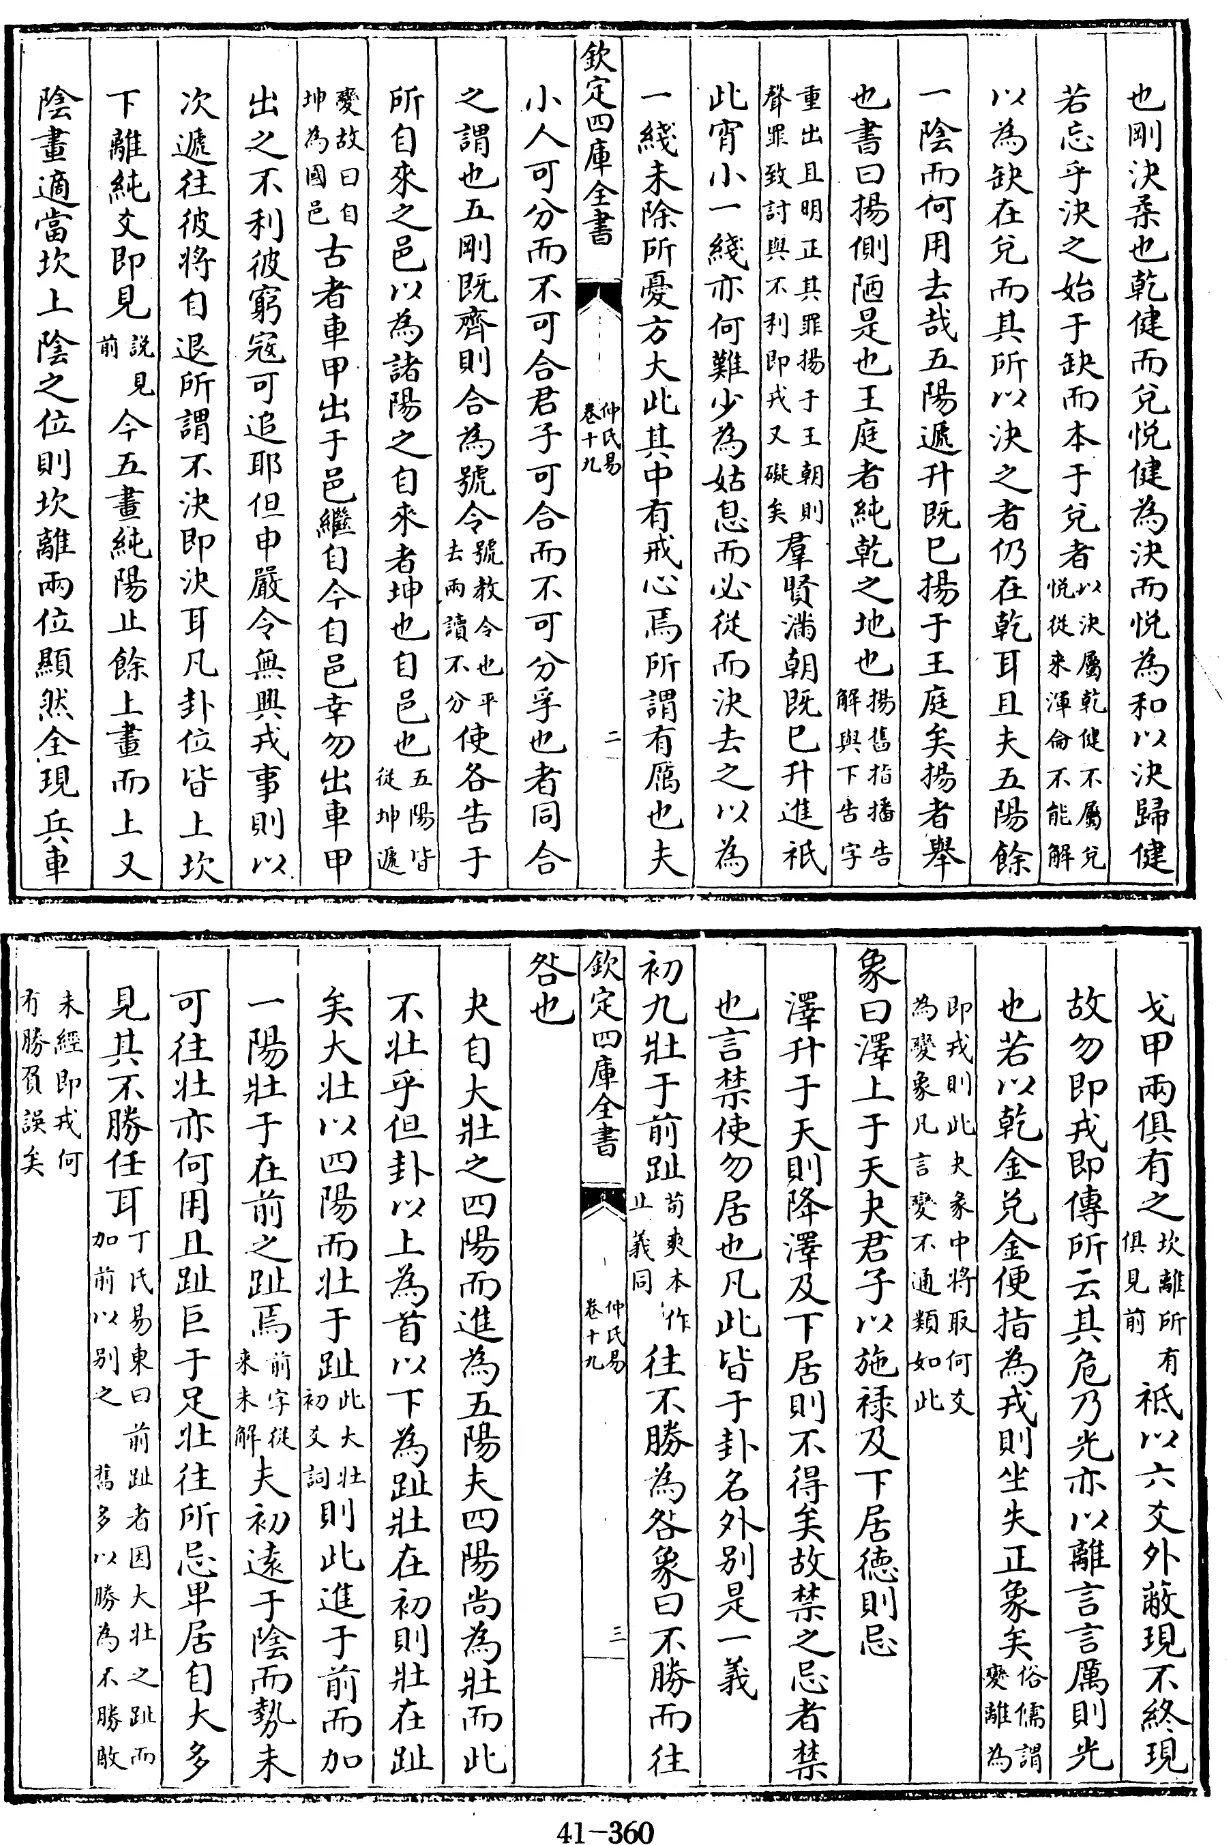 也剛決柔也乾健而兌悅健為決而悅為和以決歸健
若忘乎決之始于缺而本于兌者以決屬乾健不屬兌悅從来渾侖不能解
以為缺在兌而其所以決之者仍在乾耳且夫五陽餘
一陰而何用去哉五陽遞升既巳揚于王庭矣揚者舉
也書曰揚側陋是也王庭者純乾之地也揚舊指播告解與下告字
重出且明正其罪揚于王朝則聲罪致討與不利即戎又礙矣羣賢滿朝既巳升進祇
此宵小一綫亦何難少為姑息而必從而決去之以為
一綫未除所憂方大此其中有戒心焉所謂有厲也夫
欽定四庫全書
仲氏易
卷十九
二
小人可分而不可合君子可合而不可分孚也者同合
之謂也五剛既齊則合為號令號教令也平去兩讀不分使各告于
所自來之邑以為諸陽之自來者坤也自邑也五陽皆從坤遞
變故曰自坤為國邑古者車甲出于邑繼自今自邑幸勿出車甲
出之不利彼窮寇可追耶但申嚴令無興戎事則以
次遞往彼將自退所謂不決即決耳凡卦位皆上坎
下離純爻即見說見前今五畫純陽止餘上畫而上又
陰畫適當坎上陰之位則坎離兩位顯然全現兵車
戈甲兩俱有之坎離所有俱見前祇以六爻外蔽現不終現
故勿即戎即傳所云其危乃光亦以離言言厲則光
也若以乾金兌金便指為戎則坐失正象矣俗儒謂變離為
即戎則此夬象中將取何爻為變象凡言變不通類如此
象曰澤上于天夬君子以施祿及下居德則忌
澤升于天則降澤及下居則不得矣故禁之忌者禁
也言禁使勿居也凡此皆于卦名外別是一義
初九壯于前趾荀爽本作止義同往不勝為咎象曰不勝而往
欽定四庫全書
仲氏易
卷十九
三
咎也
夬自大壯之四陽而進為五陽夫四陽尚為壯而此
不壯乎但卦以上為首以下為趾壯在初則壯在趾
矣大壯以四陽而壯于趾此大壯初爻詞則此進于前而加
一陽壯于在前之趾焉前字從来未解夫初遠于陰而勢未
可往壯亦何用且趾巨于足壯往所忌卑居自大多
見其不勝任耳丁氏易東曰前趾者因大壯之趾而加前以別之舊多以勝為不勝敵
未經即戎何有勝負誤矣
41-360